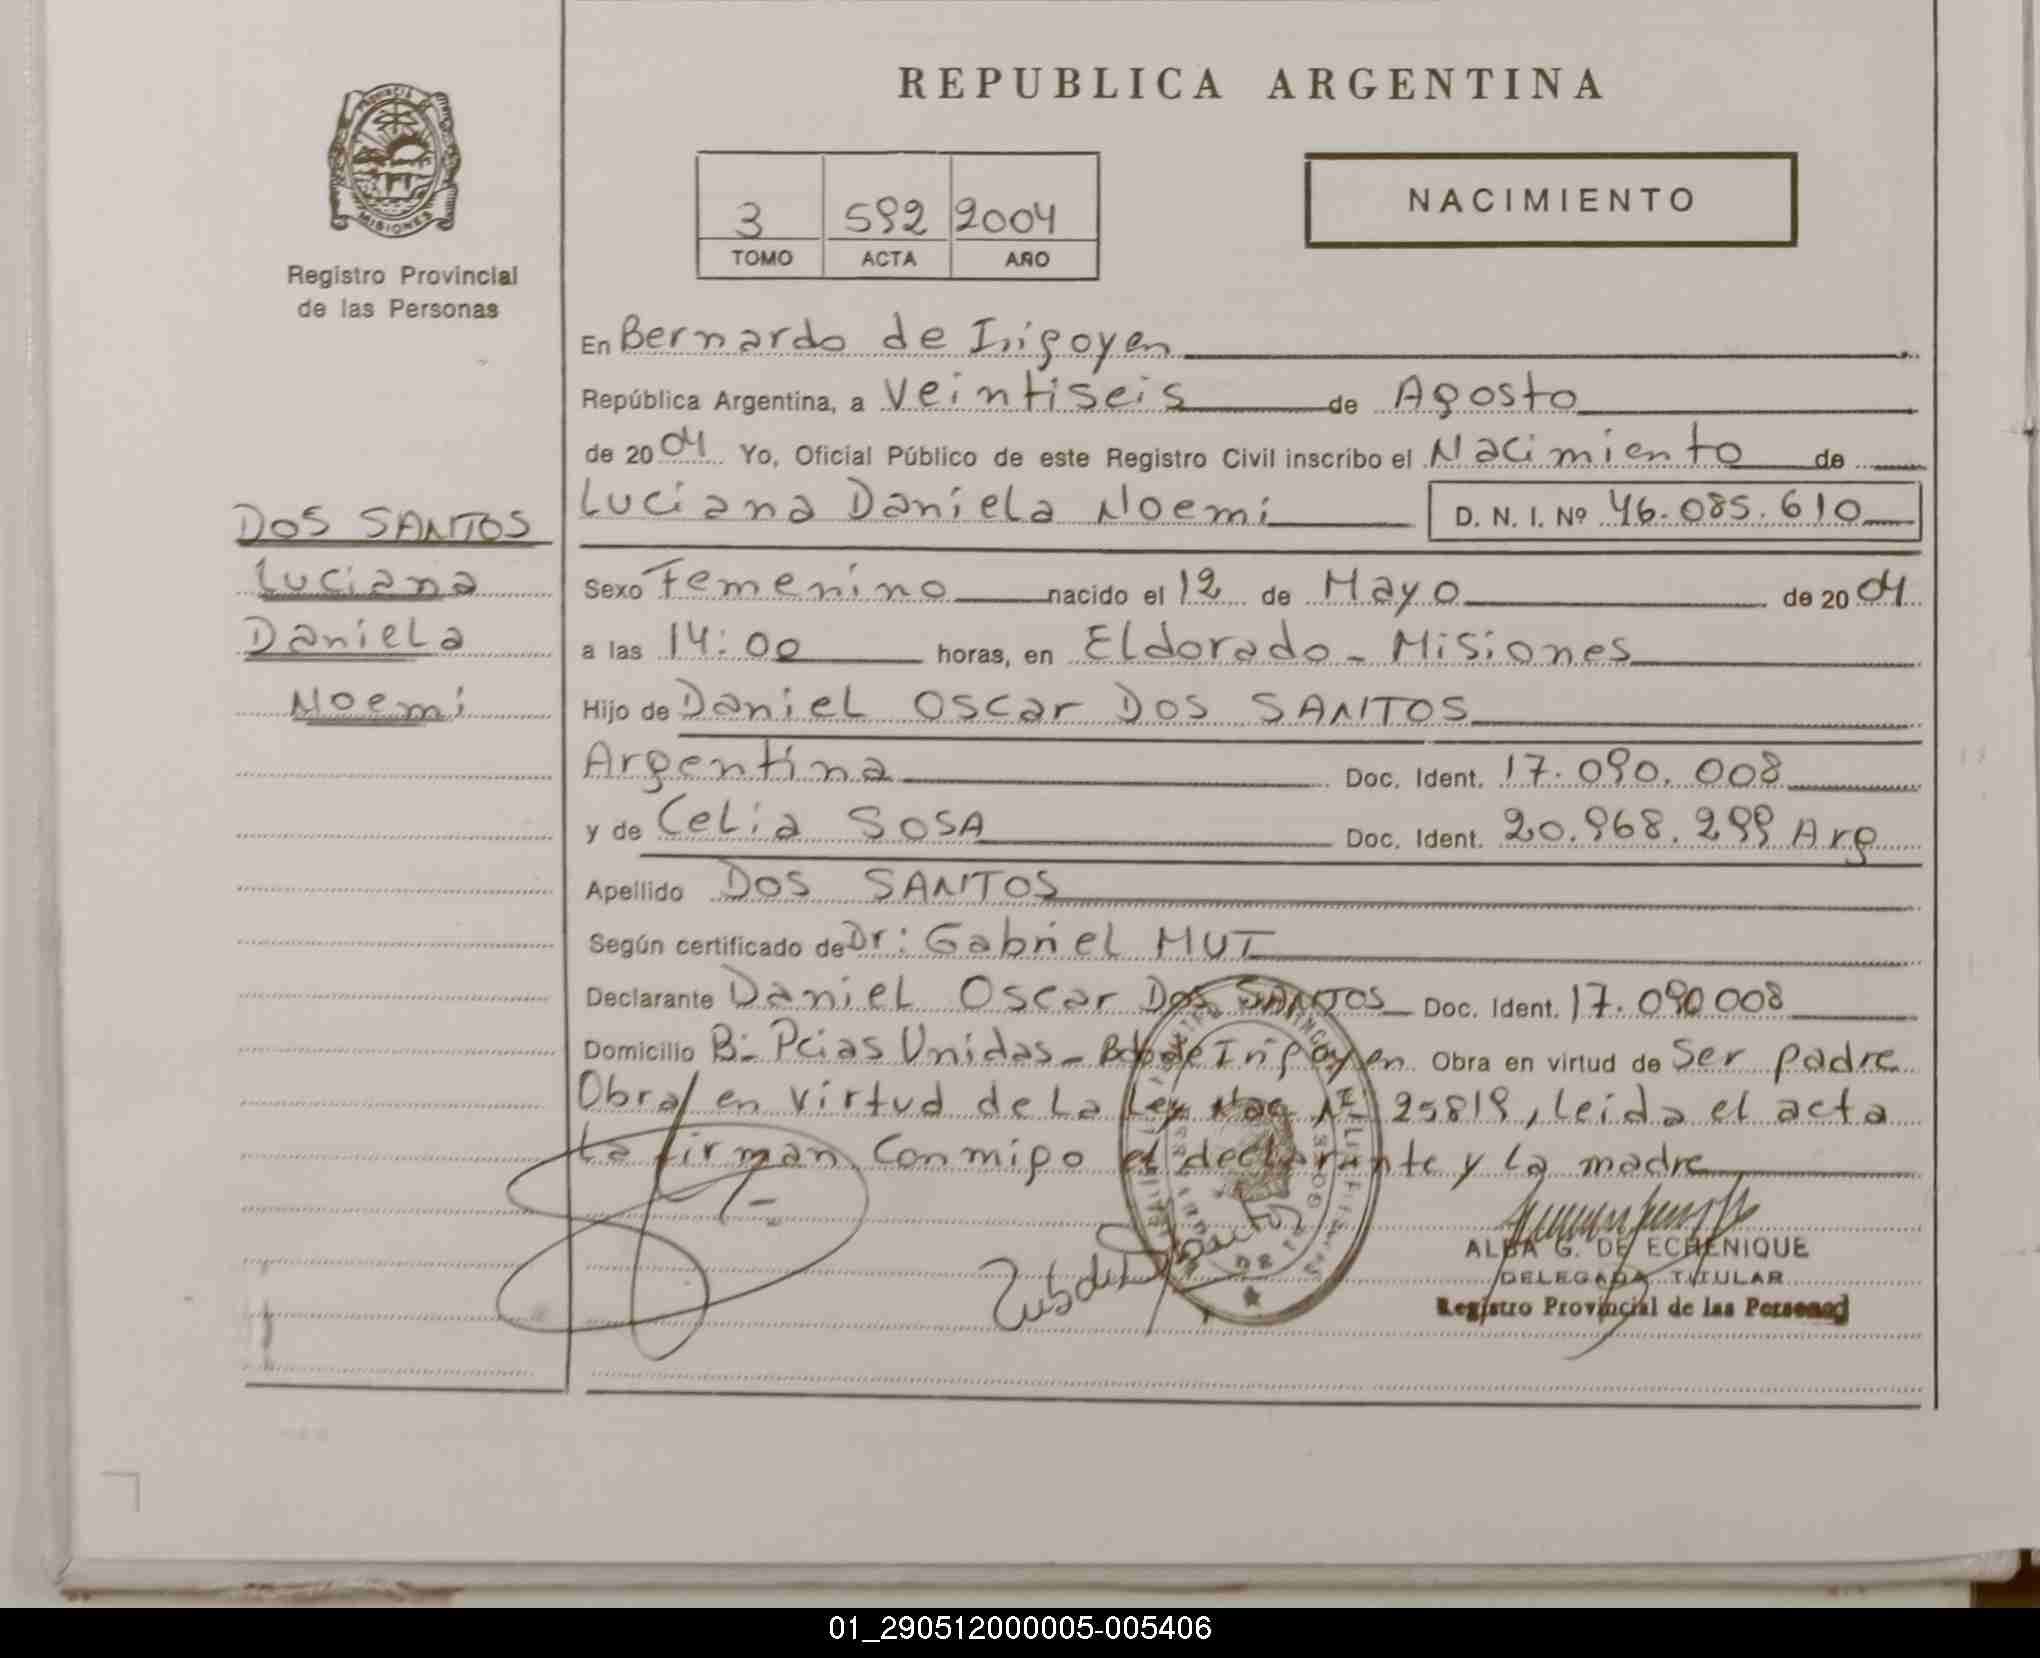 REPUBLICA ARGENTINA
PROVINCIA DE
MISIONES
Registro Provincial
de las Personas
3 592 2004
TOMO ACTA AÑO
NACIMIENTO
En Bernardo de Irigoyen
República Argentina, a Veintiseis de Agosto
de 2004 Yo, Oficial Público de este Registro Civil inscribo el Nacimiento de
Luciana Daniela Noemi D. N. I. Nº 46.085.610
DOS SANTOS
Luciana
Daniela
Noemi
Sexo Femenino nacido el 12 de Mayo de 2004
a las 14:00 horas, en Eldorado - Misiones
Hijo de Daniel Oscar DOS SANTOS
Argentina Doc. Ident. 17.090.008
y de Celia SOSA Doc. Ident. 20.968.299 Arg
Apellido DOS SANTOS
Según certificado de Dr: Gabriel MUT
Declarante Daniel Oscar DOS SANTOS Doc. Ident. 17.090008
Domicilio B: Pcias Unidas - Bdo de Irigoyen Obra en virtud de Ser padre
Obra en virtud de La Ley Nac Nº 25819, Leida el acta
La firman conmigo el declarante y La madre
ALBA G. DE ECHENIQUE
DELEGADA TITULAR
Registro Provincial de las Personas
01_290512000005-005406